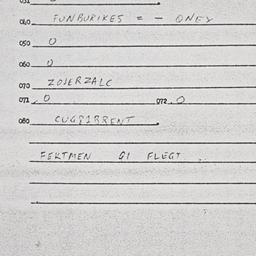 040. FUNBURIKES = - ONEY
050. 0
060. 0
070 ZOJERZALC
071 . 0 072 . 0
080 CUGPIRRENT
FEKTMEN GI FLEGT